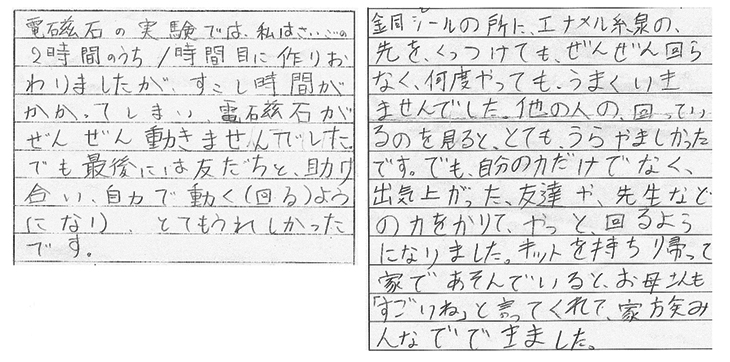 電磁石の実験では、私はさいごの
2時間のうち1時間目に作りお
わりましたが、すこし時間が
かかってしまい、電磁石が
ぜんぜん動きませんでした。
でも最後には友だちと、助け
合い、自力で動く(回る)よう
になり、とてもうれしかった
です。
銅シールの所に、エナメル線の、
先を、くっつけても、ぜんぜん回ら
なく、何度やっても、うまくいき
ませんでした。他の人の、回ってい
るのを見ると、とても、うらやましかった
です。でも、自分の力だけでなく、
出気上がった、友達や、先生など
の力をかりて、やっと、回るよう
になりました。キットを持ち帰って
家であそんでいると、お母さんも
「すごいね」と言ってくれて、家族み
んなでできました。